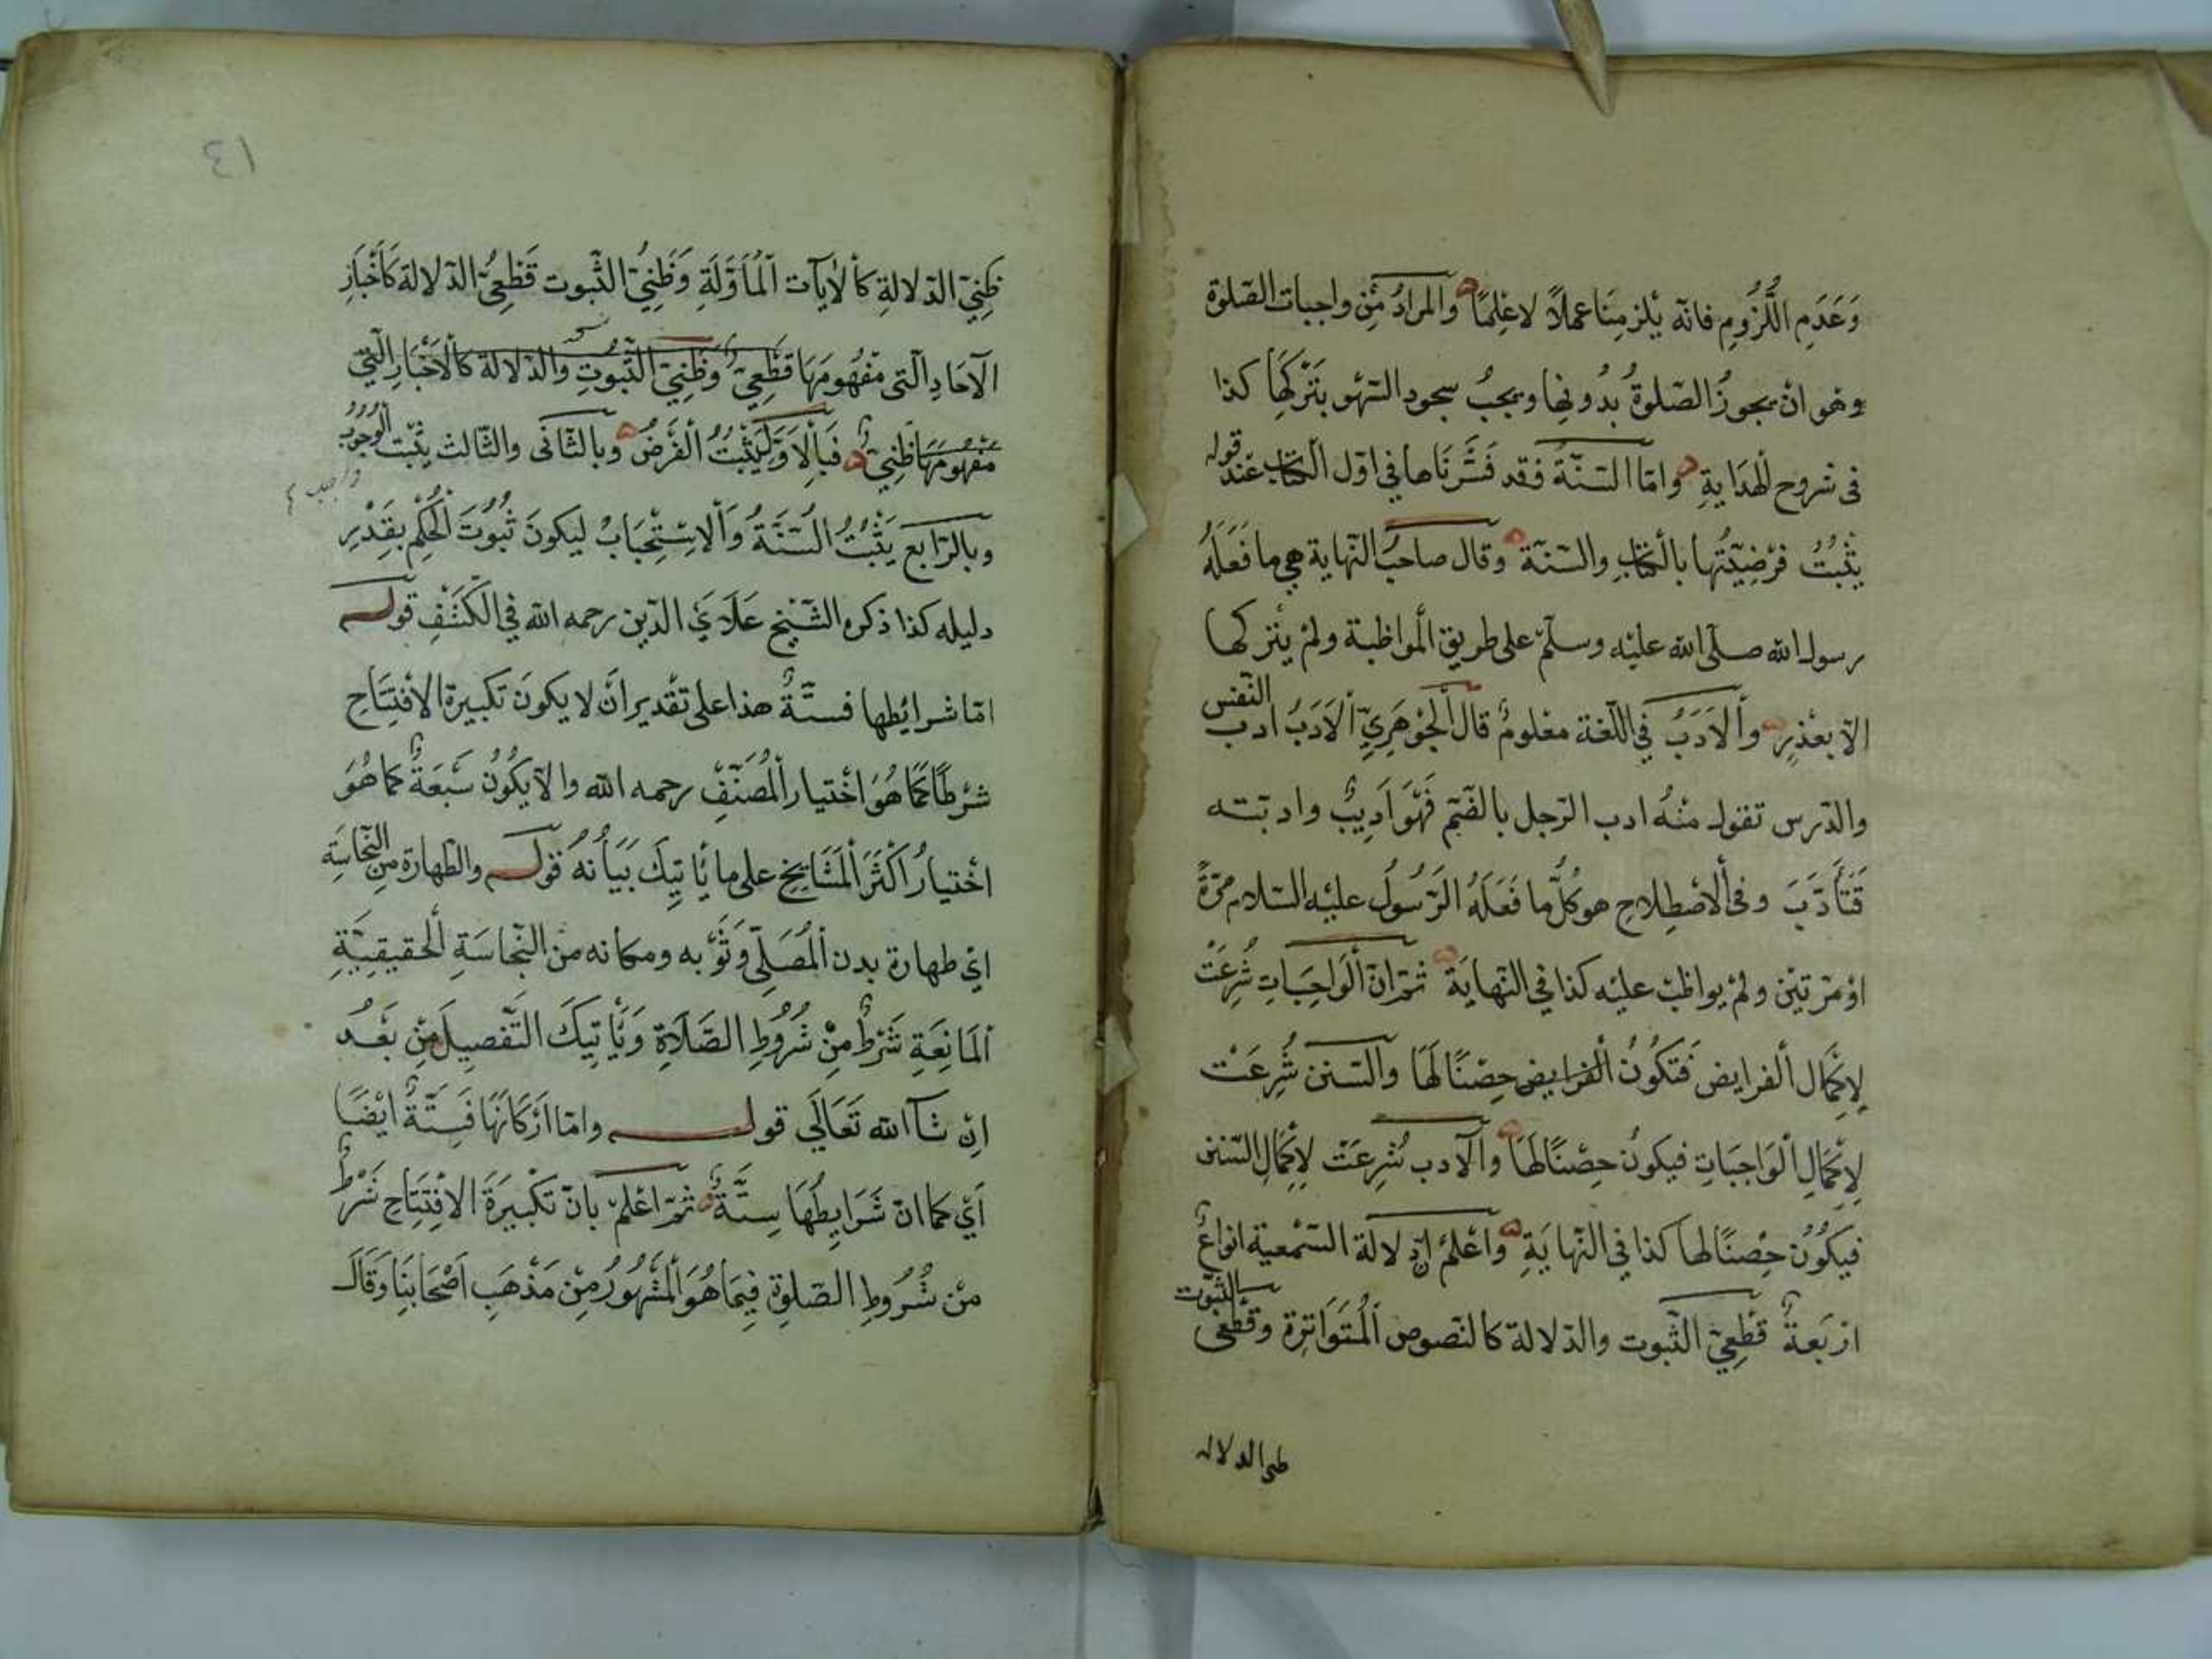 وَعَدَمِ اللُّزُومِ فانّه يلزمنا عملًا لا علمًا والمرادُ مِن واجبات الصّلوة
وهو ان يجوزُ الصّلوةُ بدُونها ويجبُ سجود السّهو بِتَرْكِهَا كذا
فى شروح الهِدَايةِ وامّا السّنّة فقد فَسَّرْنَاها في اوّل الكتاب عند قوله
يثْبُتُ فرْضِيّتُها بالْكتابِ والسّنّة وقال صاحبُ النّهاية هي ما فَعَلَهُ
رسول الله صلّى الله عليْه وسلّم على طريق الْمواظبة ولمْ يتْركها
الّا بعُذرٍ وَالْأَدَبُ في اللّغة معْلومٌ قال الْجَوْهَرِيّ الْاَدَبُ ادب النّفس
والدّرس تقول منْهُ ادب الرّجل بالضّمّ فَهْوَ اَدِيبٌ وادّبته
فَتَأَدَّبَ وفي الْاصْطِلاحِ هو كُلُّ ما فَعَلَهُ الرَّسُولُ عليْه السّلام مَرّةً
اوْ مرّتيْن ولمْ يواظبْ عليْه كذا في النّهايَة ثمّ انّ الْوَاجِبَاتِ شُرِعَتْ
لِاِكْمَال الْفرايض فَتكُونُ الْفرايض حِصْنًا لَهَا والسّنن شُرِعَتْ
لِاِكْمَالِ الْوَاجِبَاتِ فيكونُ حِصْنًا لَهَا والْآدب شُرِعَتْ لِاِكْمَالِ السّنن
فيكُونُ حِصْنًا لها كذا في النّهايَةِ وَاعْلمْ انّ دلالة السّمْعية انواعٌ
ارْبَعةٌ قَطْعِيّ الثّبوت والدّلالة كالنّصوص الْمُتَوَاتِرة وقَطْعِيّ الثّبوت
ظنى الدلاله
٤١
ظَنِيّ الدّلالةِ كالْآيَات الْمُأَوَّلَةِ وَظَنِيّ الثّبوت قَطْعِيّ الدّلالة كَاَخْبَارِ
الْآحَادِ الّتى مفْهُومَهَا قَطْعِيّ وَظَنِيّ الثّبُوتِ والدّلالة كالْاَخْبَارِ الّتي
مفْهُومَهَا ظَنِيّ فَبِالْاَوَّلِ يَثْبُتُ الْفَرْضُ وبالثّانى والثّالث يثْبُت الْوُجُوبُ
واجب
وبالرّابع يَثْبُتُ السُّنَّةُ وَالْاِسْتِحْبَابُ ليكونَ ثُبُوتَ الْحُكْمِ بِقَدْرِ
دليله كذا ذكره الشّيْخ عَلَاءِ الدّين رحمه الله في الْكَشْفِ قوله
امّا شرائطها فستّةٌ هذا على تقْدير انْ لا يكونَ تكبيرةَ الْافْتِتَاحِ
شرْطًا كَمَا هُوَ اخْتيار الْمُصَنِّفِ رحمه الله والّا يكُونُ سَبْعَةً كما هُوَ
اخْتيارُ اَكْثَرَ الْمَشَايخِ على ما يأْتيِكَ بَيَانُهُ قوله والطّهارة من النّجاسَةِ
ايْ طهارة بدن الْمُصَلّي وَثَوْبِه ومكانه من النّجاسَةِ الْحقيقِيّةِ
الْمَانِعَةِ شَرْطٌ مِنْ شُرُوطِ الصّلَاةِ وَيَأْتيكَ التّفْصيلَ مِنْ بَعْدُ
اِنْ شآء الله تَعَالَى قوله وامّا اَرْكَانَهَا فَسِتّةٌ ايْضًا
اَيْ كما انّ شَرَايِطُهَا سِتّةٌ ثمّ اعْلمْ بانّ تَكْبِيرَةَ الْافْتِتَاحِ شَرْطٌ
منْ شُرُوطِ الصّلوةِ فيِمَا هُوَ الْمَشْهُورُ مِنْ مَذْهَبِ اَصْحَابِنَا وَقَالَ